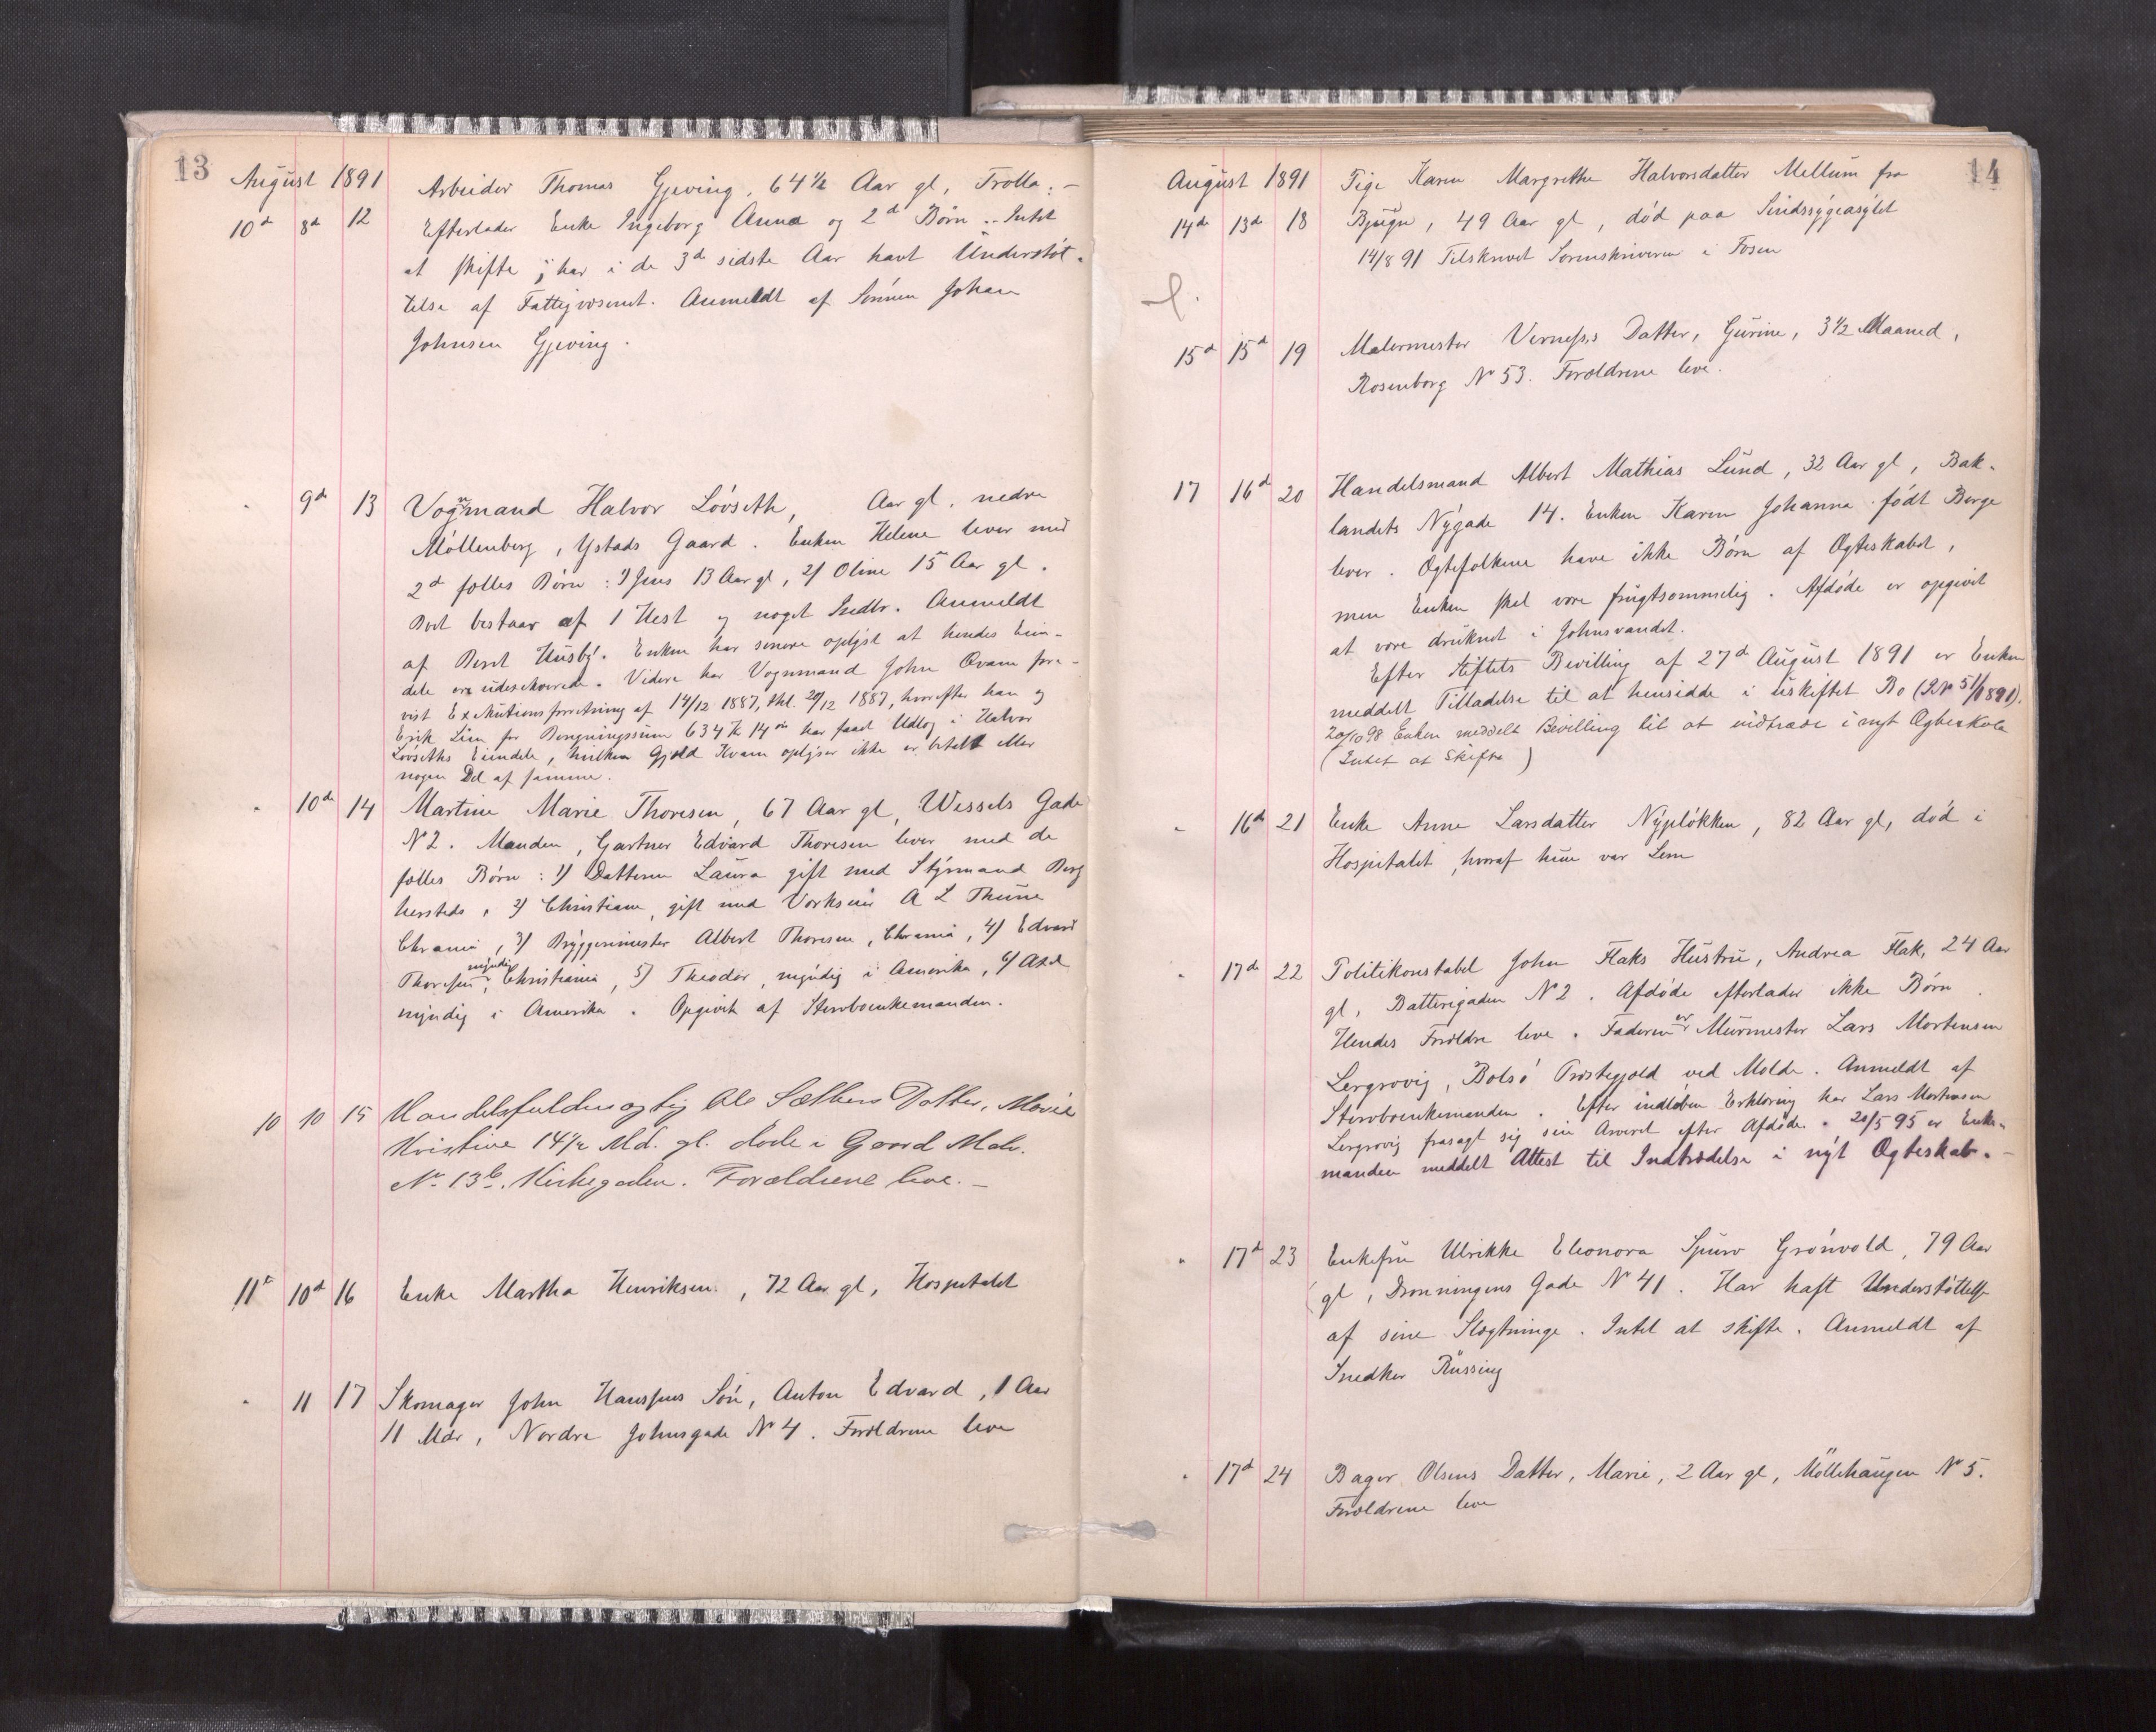 13
August 1891
10d 8d 12 Arbeider Thomas Gjeving, 64½ Aar gl, Trolla. –
Efterlader Enke Ingeborg Anna og 2d Børn. Intet
at skifte; har i de 3d sidste Aar havt Understøt-
telse af Fattigvæsenet. Anmeldt af Sønnen Johan
Johnsen Gjeving.
" 9d 13 Vognmand Halvor Løvseth, Aar gl, nedre
Møllenberg, Ystads Gaard. Enken Helene lever med
2d fælles Børn: 1) Jens 13 Aar gl, 2) Oline 15 Aar gl.
Boet bestaar af 1 Hest og noget Indbo. Anmeldt
af Beret Husby. Enken har senere oplyst at hendes Eien-
dele ere udeskverede. Videre har Vognmand John Qvam fore-
vist Exekutionsforretning af 14/12 1887, thl. 20/12 1887, hvorefter han og
Erik Lien for Borgningssum 634 Kr 14 øre har faaet Udlæg i Halvor
Løvseths Eiendele, hvilken Gjæld Kvam oplyser ikke er betalt eller
nogen Del af samme.
" 10de 14 Martine Marie Thoresen, 67 Aar gl, Wessels Gade
N 2. Manden, Gartner Edvard Thoresen lever med de
fælles Børn: 1) Datteren Laura gift med Styrmand Berg
hersteds, 2) Christiane, gift med Værkseier A L Thune
Chrania, 3) Bryggerimester Albert Thoresen, Chrania, 4) Edvard
Thoresen, myndig, Christiania, 5) Theodor, myndig i Amerika, 6) Axel
myndig i Amerika. Opgivet af Stervboenkemanden.
10 10 15 Handelsfuldmægtig Ole Sæthers Datter, Marie
Kristine 14½ Md. gl. døde i Gaard Matr.
No 13b. Kirkegaden. Forældrene leve. –
11te 10d 16 Enke Martha Henriksen, 72 Aar gl, Hospitalet
" 11 17 Skomager John Hansens Søn, Anton Edvard, 1 Aar
11 Mdr, Nordre Johnsgade No 4. Forældrene leve
14
August 1891
14de 13de 18 Pige Karen Margrethe Halvorsdatter Mellum fra
Bjugn, 49 Aar gl, død paa Sindssygeasylet
14/8 91 Tilskrevet Sorenskriveren i Fosen
15d 15d 19 Malermester Verness's Datter, Gurine, 3½ Maaned,
Rosenborg No 53. Forældrene leve.
17 16d 20 Handelsmand Albert Mathias Lund, 32 Aar gl, Bak-
landets Nygade 14. Enken Karen Johanna født Berge
lever. Ægtefolkene have ikke Børn af Ægteskabet,
men Enken skal være frugtsommelig. Afdøde er opgivet
at være druknet i Johnsvandet.
Efter Stiftets Bevilling af 27d August 1891 er Enken
meddelt Tilladelse til at hensidde i uskiftet Bo (PN 51/1891).
20/10 98 Enken meddelt Bevilling til at indtræde i nyt Ægteskab
(Intet at Skifte)
" 16d 21 Enke Anne Larsdatter Nypløkken, 82 Aar gl, død i
Hospitalet, hvoraf hun var Lem
" 17de 22 Politikonstabel John Flaks Hustru, Andrea Flak, 24 Aar
gl, Batterigaden N 2. Afdøde efterlader ikke Børn.
Hendes Forældre leve. Faderen er Murmester Lars Mortensen
Lergrovig, Bolsø Præstegjæld ved Molde. Anmeldt af
Stervboenkemanden. Efter indløben Erklæring har Lars Mortensen
Lergrovig frasagt sig sin Arveret efter Afdøde. 20/5 95 er Enke-
manden meddelt Attest til Indtrædelse i nyt Ægteskab. –
" 17d 23 Enkefru Ulrikke Eleonora Spuro Grønvold, 79 Aar
gl, Dronningens Gade No 41. Har haft Understøttelse
af sine Slægtninge. Intet at skifte. Anmeldt af
Snedker Russing
" 17d 24 Bager Olsens Datter, Marie, 2 Aar gl, Møllehaugen No 5.
Forældrene leve